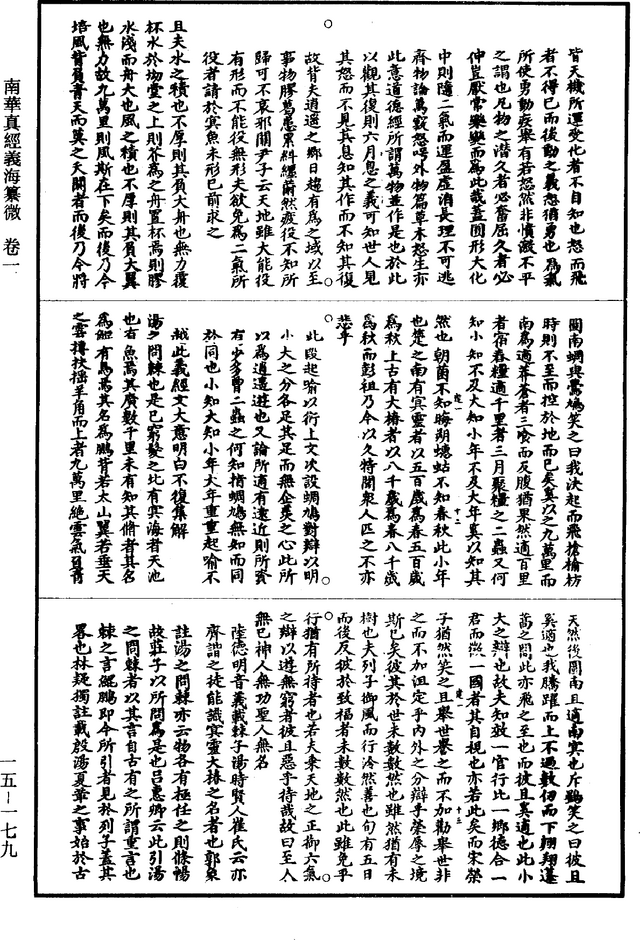 皆天機所運受化者不自知也怒而飛
者不得已而後動之義怒猶勇也為氣
所使勇動疾舉有若怒然非憤激不平
之謂也凡物之潛久者必奮屈久者必
伸豈厭常樂變而為此哉蓋囿形大化
中則隨二氣而運盈虛消長理不可逃
齊物論萬竅怒呺外物篇草木怒生亦
此意道德經所謂萬物並作是也於此
以觀其復則六月息之義可知世人見
其怒而不見其息知其作而不知其復
故背夫逍遙之鄉日趨有為之域以至
事物膠葛患累糾纏薾然疲役不知所
歸可不哀邪關尹子云天地雖大能役
有形而不能役無形夫欲免為二氣所
役者請於冥魚未形已前求之
且夫水之積也不厚則其負大舟也無力覆
杯水於坳堂之上則芥為之舟置杯焉則膠
水淺而舟大也風之積也不厚則其負大翼
也無力故九萬里則風斯在下矣而後乃今
培風背負青天而莫之夭閼者而後乃今將
圖南蜩與鷽鳩笑之曰我決起而飛搶榆枋
時則不至而控於地而已矣奚以之九萬里而
南為適莽蒼者三飡而反腹猶果然適百里
者宿舂糧適千里者三月聚糧之二蟲又何
知小知不及大知小年不及大年奚以知其
然也朝菌不知晦朔蟪蛄不知春秋此小年
十二
也楚之南有冥靈者以五百歲為春五百歲
為秋上古有大椿者以八千歲為春八千歲
為秋而彭祖乃今以久特聞眾人匹之不亦
悲乎
此段起喻以衍上文次設蜩鳩對辯以明
小大之分各足其足而無企羨之心此所
以為逍遙遊也又論所適有遠近則所資
有少多二蟲之何知指蜩鳩無知而同
於同也小知大知小年大年重重起喻不
越此義經文大意明白不復集解
湯之問棘也是已窮髮之北有冥海者天池
也有魚焉其廣數千里未有知其脩者其名
為鯤有鳥焉其名為鵬背若太山翼若垂天
之雲摶扶搖羊角而上者九萬里絕雲氣負青
天然後圖南且適南冥也斥鷃笑之曰彼且
奚適也我騰躍而上不過數仞而下翱翔蓬
蒿之間此亦飛之至也而彼且奚適也此小
大之辯也故夫知效一官行比一鄉德合一
君而徵一國者其自視也亦若此矣而宋榮
子猶然笑之且舉世譽之而不加勸舉世非
十三
之而不加沮定乎內外之分辯乎榮辱之境
斯已矣彼其於世未數數然也雖然猶有未
樹也夫列子御風而行泠然善也旬有五日
而後反彼於致福者未數數然也此雖免乎
行猶有所待者也若夫乘天地之正御六氣
之辯以遊無窮者彼且惡乎待哉故曰至人
無已神人無功聖人無名
陸德明音義載棘子湯時賢人崔氏云亦
齊諧之徒能識冥靈大椿之名者也郭象
註湯之問棘亦云物各有極任之則條暢
故莊子以所問為是也呂惠卿云此引湯
之問棘者以其言自古有之所謂重言也
棘之言鯤鵬即今所引者見於列子蓋其
畧也林疑獨註載殷湯夏革之事始於古
南華真經義海纂微 卷一
一五-一七九